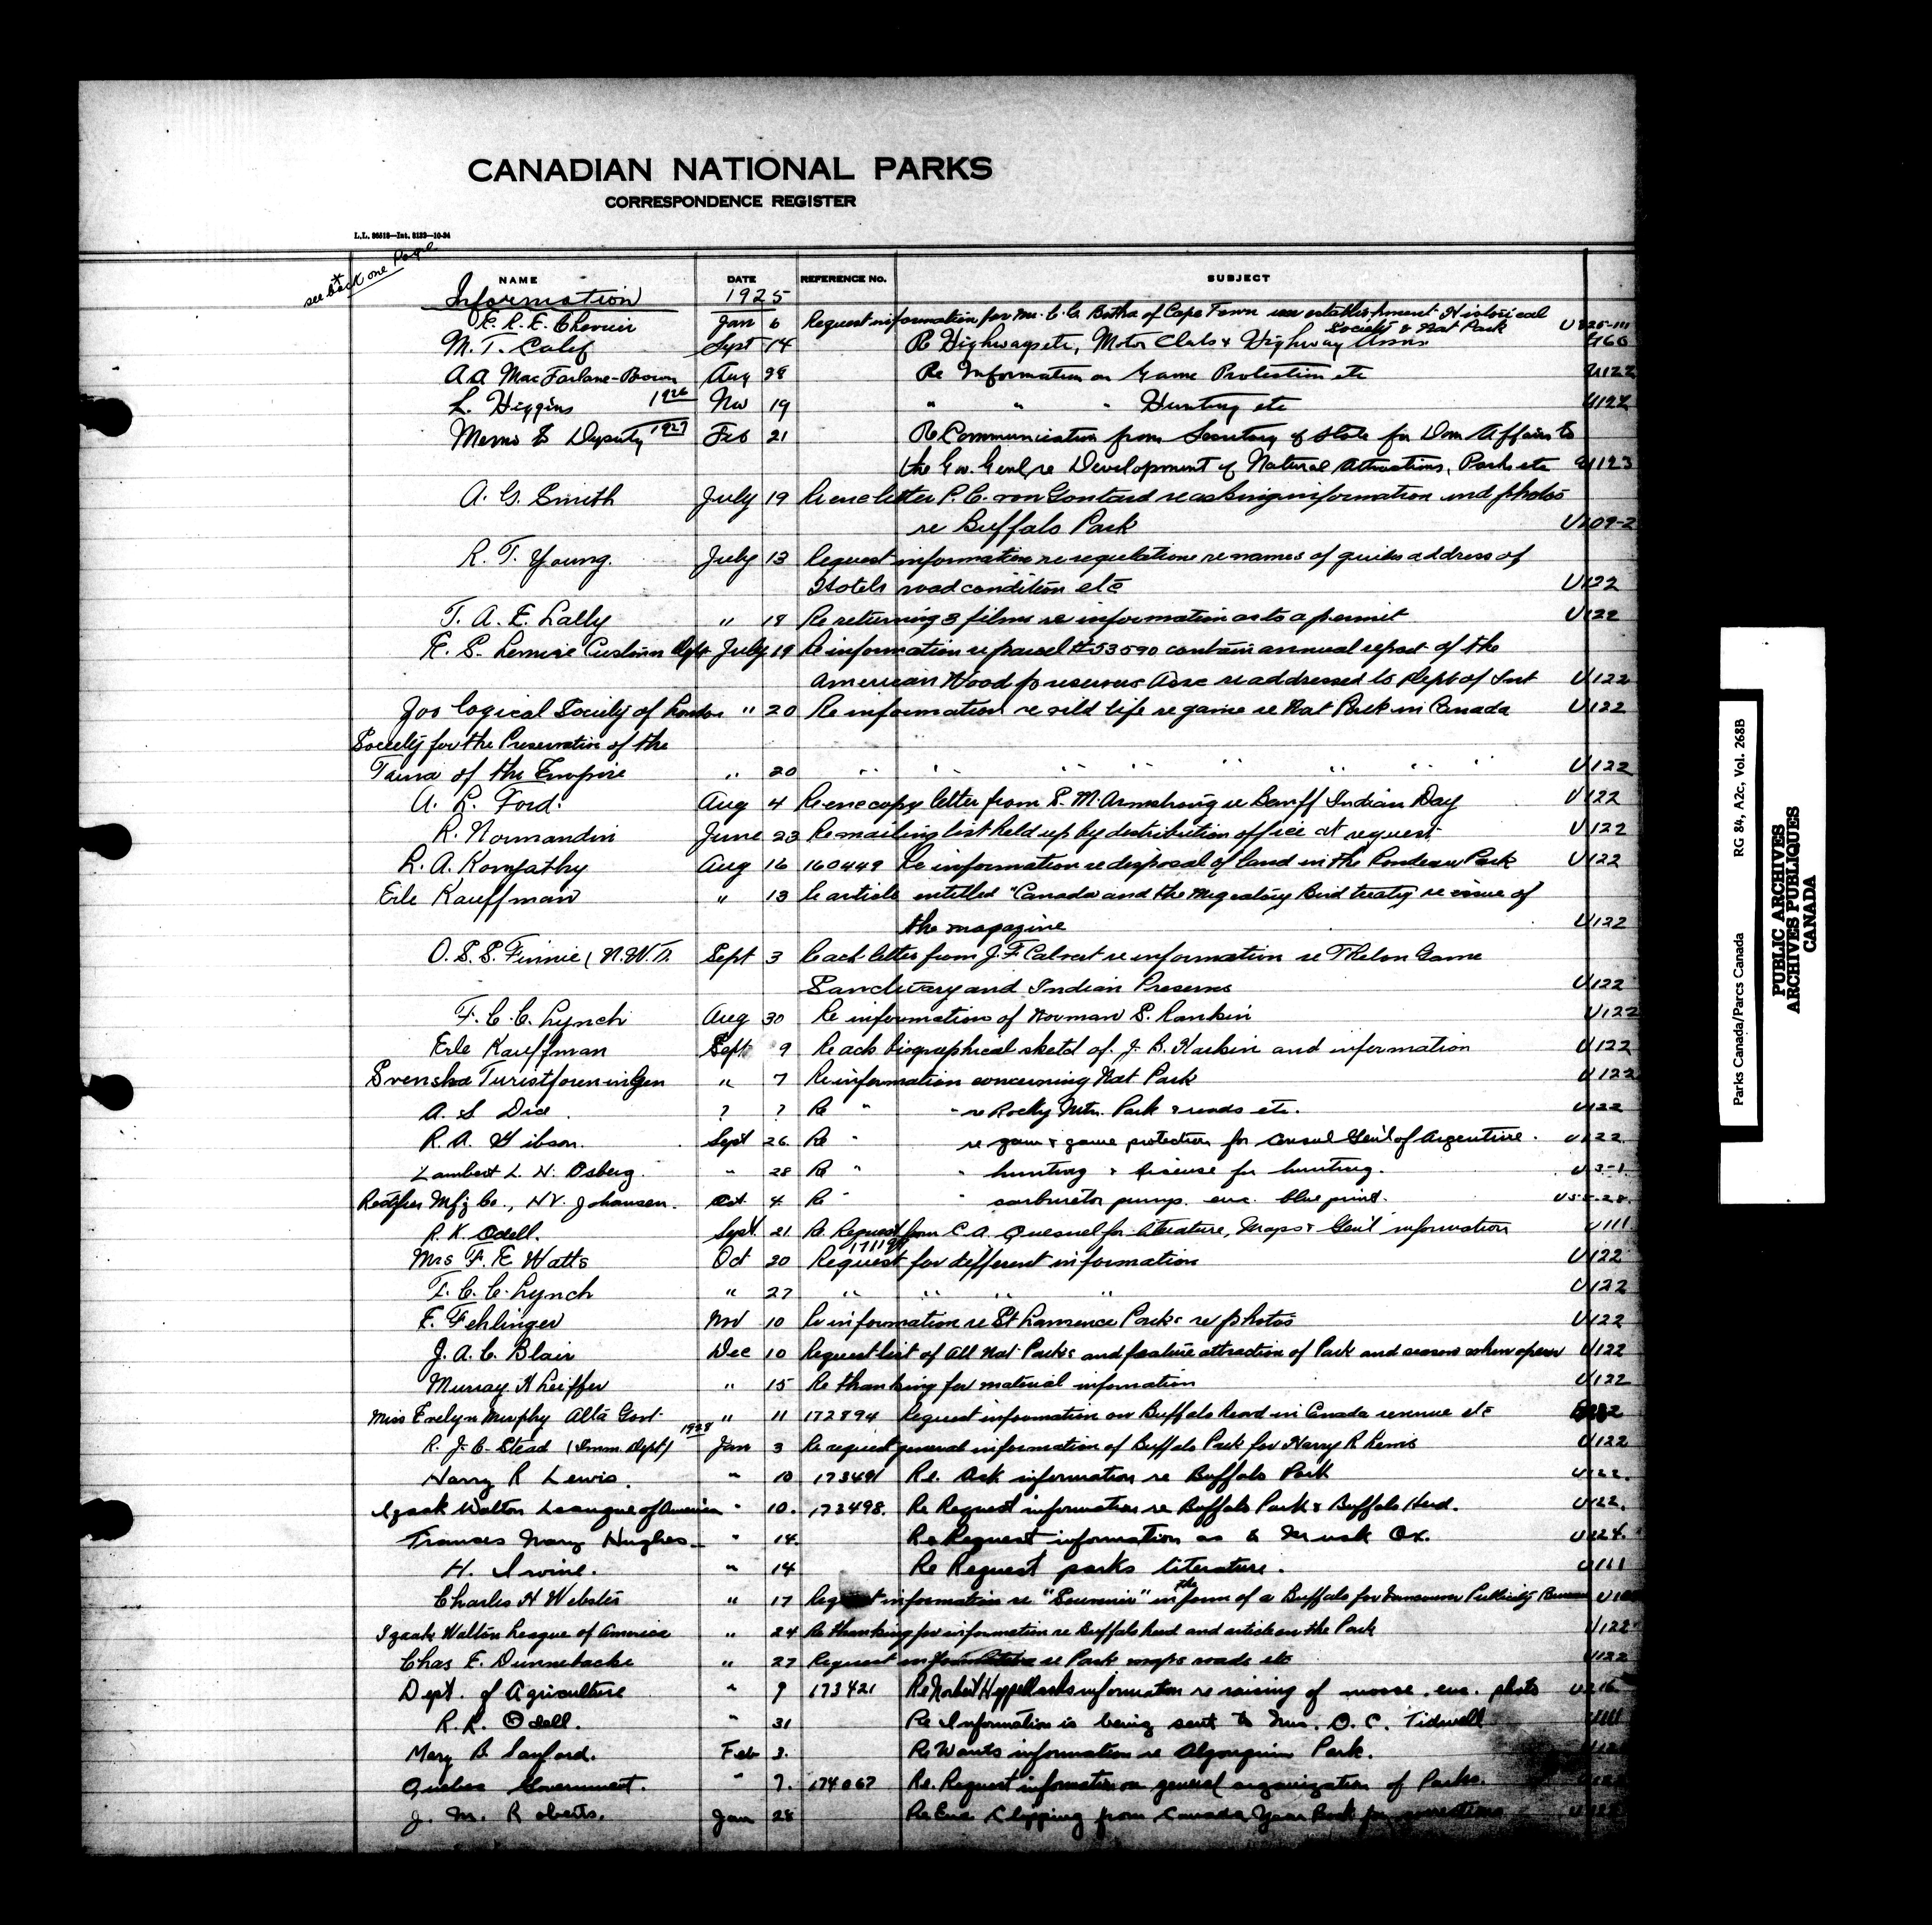 CANADIAN NATIONAL PARKS
CORRESPONDENCE REGISTER
L.L. 86518—Int. 8133—10-24
* see back one Page
NAME DATE REFERENCE No. SUBJECT
Information 1925
E. R. E. Chevrier Jan 6 Request information for Mr. C. G. Botha of Cape Town establishment Historical
Society & Nat Park U325-111
M. T. Calef Sept 14 Re Highways etc, Motor Clubs & Highway Assns 960
A A MacFarlane-Brown Aug 28 Re Information on Game Protection etc U122
L. Higgins 1926 Nov 19 " " " Hunting etc U122
Memo to Deputy 1927 Feb 21 Re Communication from Secretary of State for Dom Affairs to
the Gov. Genl, re Development of Natural Attractions, Parks etc U123
A. G. Smith July 19 Re enc letter P. C. von Gontard re asking information and photos
re Buffalo Park U109-2
R. T. Young. July 13 Request information re regulations re names of guides address of
Hotels road condition etc U122
T. A. E. Lally " 18 Re returning 3 films re information as to a permit U122
E. S. Customs Dept July 19 Re information re parcel #53590 contain annual report of the
American Wood preservers Assc readdressed to Dept of Int U122
Zoological Society of London " 20 Re information re wild life re game re Nat Park in Canada U122
Society for the Preservation of the
Fauna of the Empire " 20 " " " " " " " " U122
A. L. Ford. Aug 4 Re enc copy letter from P. M. Armstrong re Banff Indian Day U122
R. Normandin June 23 Re mailing list held up by distribution office at request U122
L. A. Kompathy Aug 16 160449 Re information re disposal of land in the Rondeau Park U122
Erle Kauffman " 13 Re article entitled "Canada and the Migratory Bird treaty re issue of
the magazine U122
O. S. S. Finnie (N.W.T. Sept 3 Re ack letter from J. F. Calvert re information re Thelon Game
Sanctuary and Indian Preserves U122
F. C. C. Lynch Aug 30 Re information of Norman S. Rankin U122
Erle Kauffman Sept 9 Re ack biographical sketch of J. B. Harkin and information U122
Svenska Turistforeningen " 7 Re information concerning Nat Park U122
A. S. Dice ? ? Re " " re Rocky Mtn. Park & roads etc. U122
R. A. Gibson. Sept 26 Re " re game & game protection for Consul Gen'l of Argentine. U122
Lambert L. N. Osberg. " 28 Re " " hunting & license for hunting. U3-1
Rectifier Mfg Co., H.V. Johansen. Oct. 4 Re " " carburetor pumps. enc. blue print.
R. K. Odell. Sept 21 Re Request from C. A. Quesnel for literature, Maps & Gen'l information U111
Mrs F. E. Watts Oct 20 Request for different information U122
F. C. C. Lynch " 27 " " " " U122
F. Fehlinger Nov 10 Re information re St Lawrence Parks re photos U122
J. A. C. Blair Dec 10 Request list of All Nat Parks and feature attraction of Park and seasons when open U122
Murray H Leiffer " 15 Re thanking for material information U122
Miss Evelyn Murphy Alta Govt " 11 172894 Request information on Buffalo Herd in Canada revenue etc
R. J. C. Stead (Imm. Dept) 1928 Jan 3 Re request general information of Buffalo Park for Harry R Lewis U122
Harry R Lewis. " 10 173491 Re. Ask information re Buffalo Park U122.
Izaak Walton League of America " 10. 173498. Re Request information re Buffalo Park & Buffalo Herd. U122.
Frances Mary Hughes. " 14. Re Request information as to Musk Ox. U124.
H. Irvine. " 14 Re Request parks literature. U111
Charles H Webster " 17 Request information re "Souvenir" in the form of a Buffalo for Vancouver Publicity Bureau
Izaak Walton League of America " 24 Re thanking for information re Buffalo herd and article on the Park U122
Chas E. Dunnebacke " 27 Request information re Park maps roads etc U122
Dept. of Agriculture " 9 173421 Re Norbert asks information re raising of moose. enc. photo U216
R. K. Odell. " 31 Re Information is being sent to Mrs. O. C. Tidwell U111
Mary B. Sanford. Feb 3. Re Wants information re Algonquin Park.
Quebec Government. " 7. 174067 Re. Request information on general organization of Parks.
J. M. Roberts. Jan 28 Re Enc Clipping from Canada Year Book for corrections
Parks Canada/Parcs Canada RG 84, A2c, Vol. 268B
PUBLIC ARCHIVES
ARCHIVES PUBLIQUES
CANADA